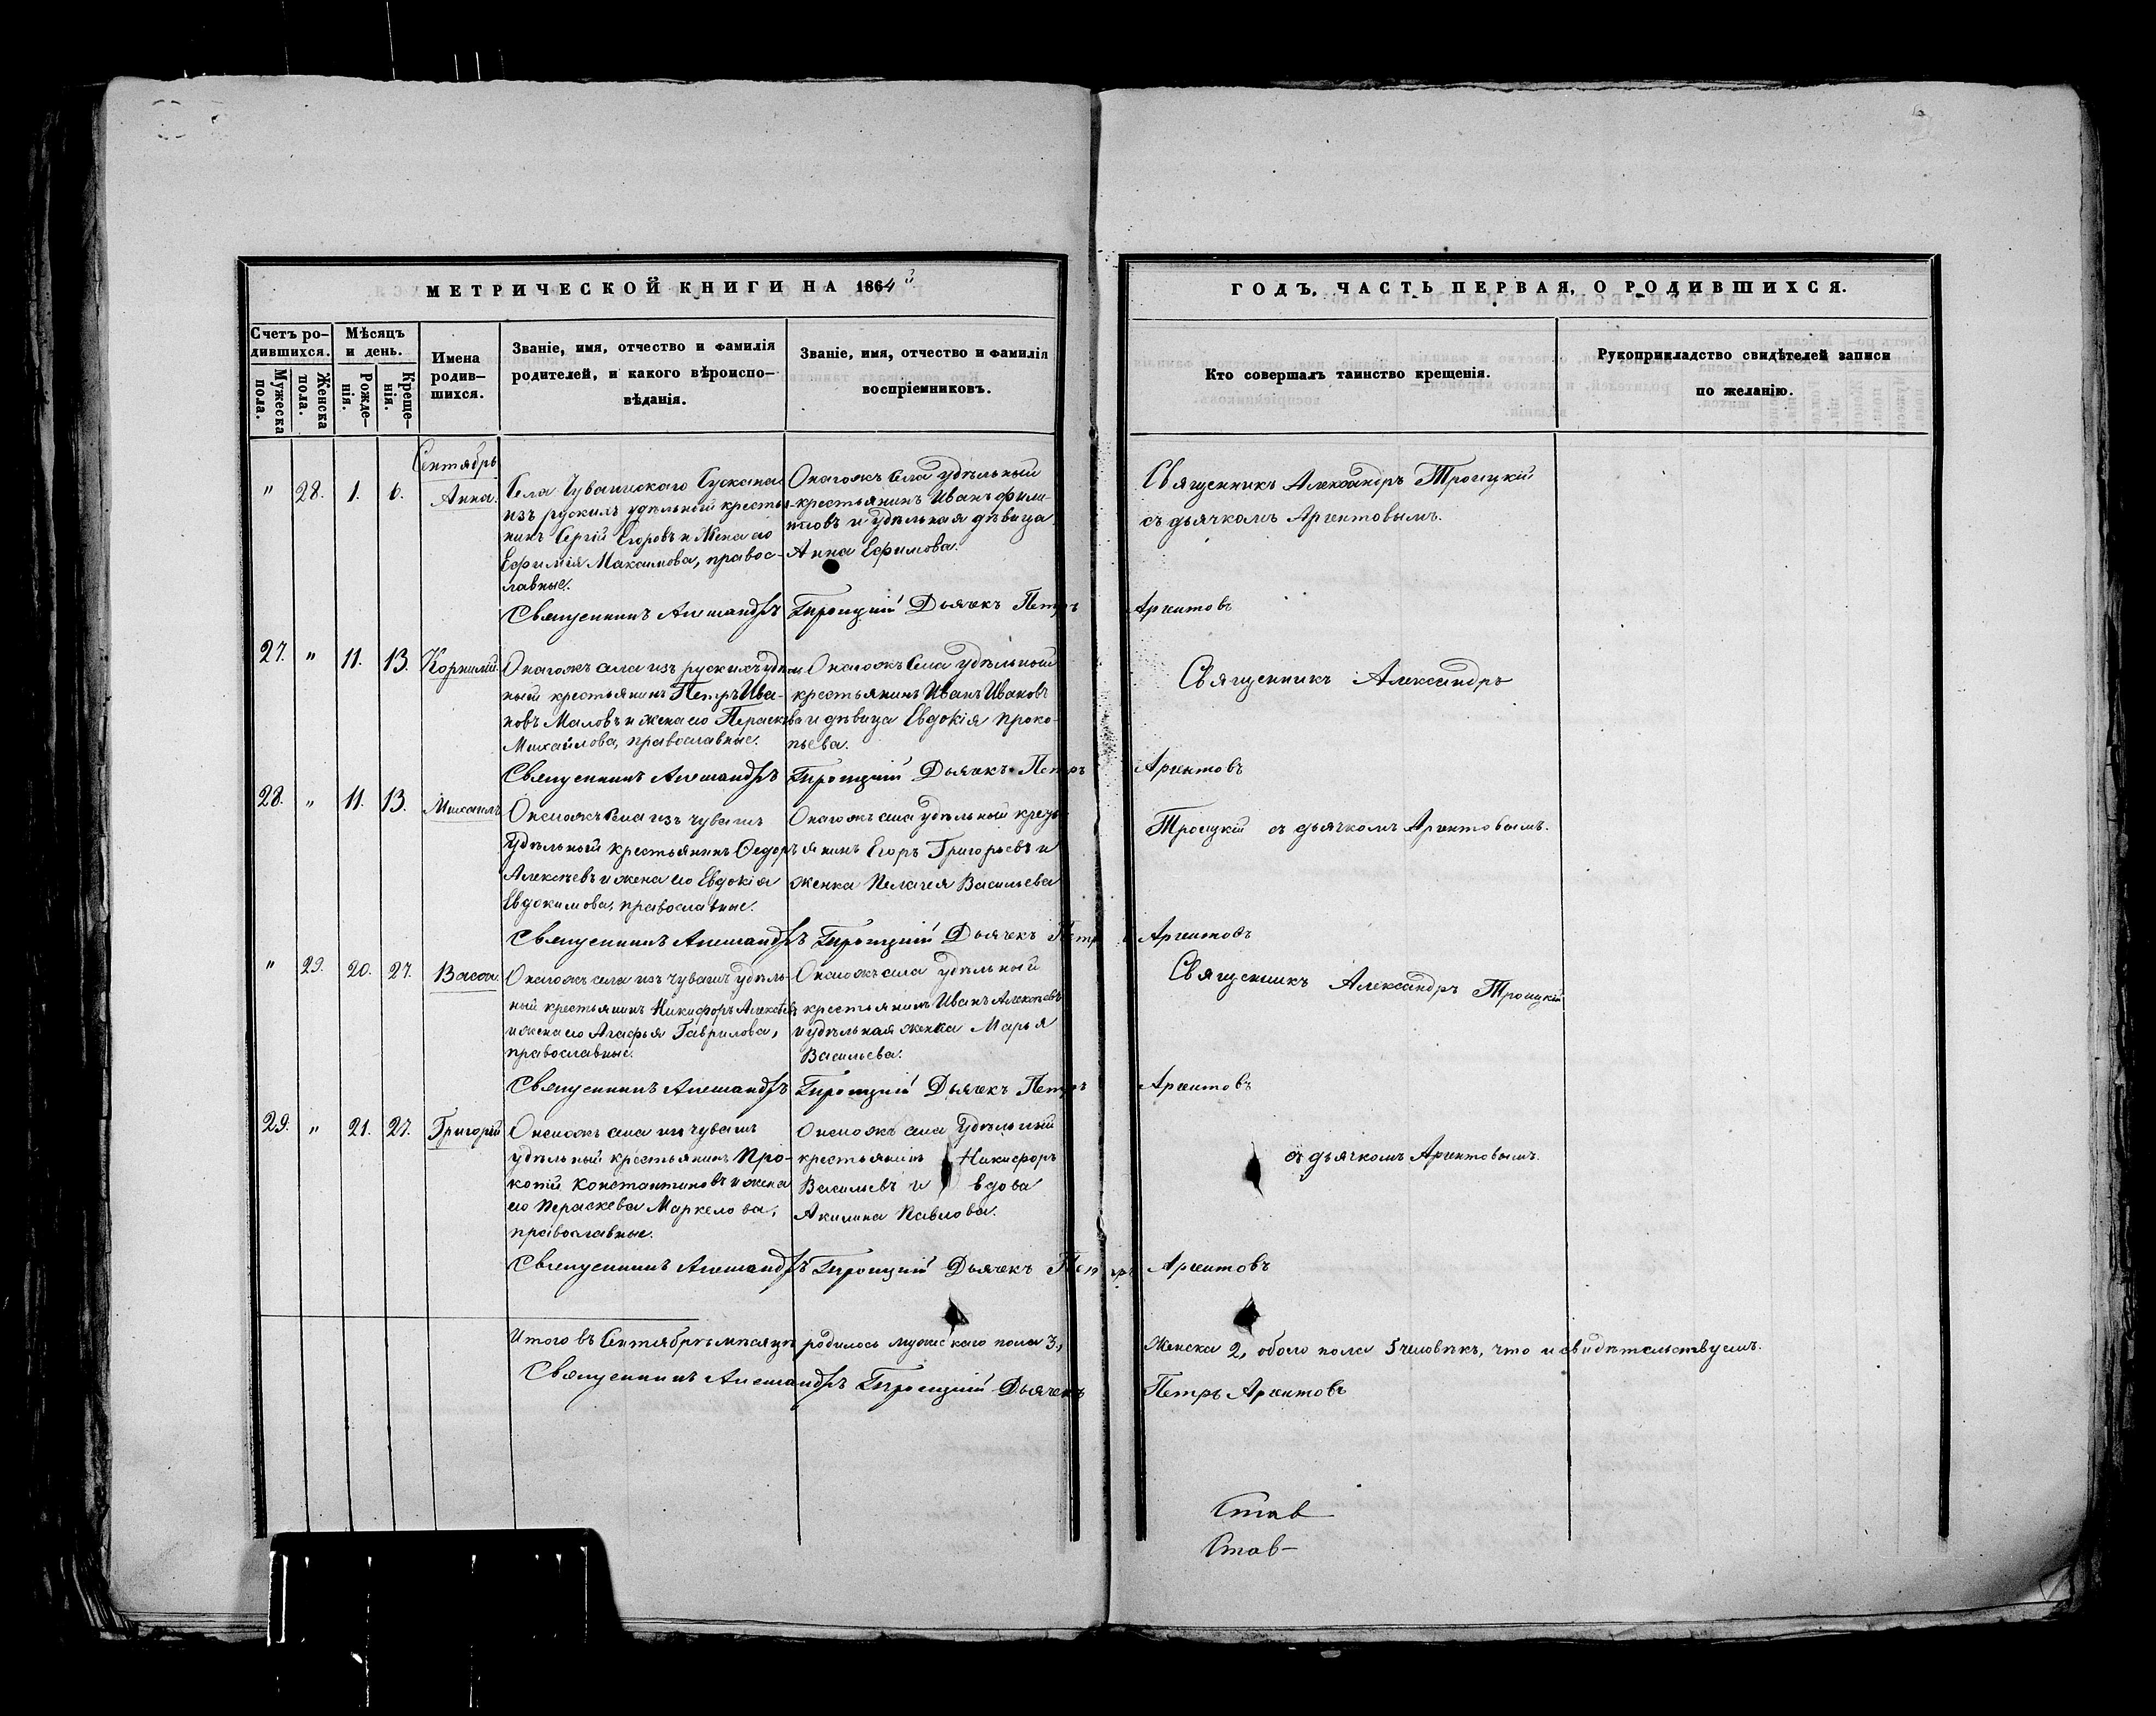 МЕТРИЧЕСКОЙ КНИГИ НА 1864й
ГОДЪ, ЧАСТЬ ПЕРВАЯ, О РОДИВШИХСЯ.
Счетъ ро-
дившихся.
Мужеска
пола.
Женска
пола.
Мѣсяцъ
и день.
Рожде-
нія.
Креще-
нія.
Имена
родив-
шихся.
Званіе, имя, отчество и фамилія
родителей, и какого вѣроиспо-
вѣданія.
Званіе, имя, отчество и фамилія
воспріемниковъ.
Кто совершалъ таинство крещенія.
Рукоприкладство свидѣтелей записи
по желанію.
Сентябрь
" 28. 1. 6. Анна.
Села Чувашскаго Сускана
изъ рускихъ удѣльный крестья-
нинъ Сергій Егоровъ и Жена его
Ефимія Максимова, правос-
лавные.
Онагожъ Села удѣльный
крестьянинъ Иванъ Фили-
повъ и удѣльная дѣвица
Анна Ефимова.
Священникъ Александръ Троицкій
съ дьячкомъ Аргентовымъ.
Священникъ Александръ Троицкій Дьячекъ Петръ Аргентовъ
27. " 11. 13. Корнилій.
Онагожъ села изъ рускихъ удѣль
ный крестьянинъ Петръ Ива-
новъ Маловъ и жена его Параскева
Михайлова, православные.
Онагожъ Села удѣльный
крестьянинъ Иванъ Ивановъ
и дѣвица Евдокія Проко-
пьева.
Священникъ Александръ
Священникъ Александръ Троицкій Дьячекъ Петръ Аргентовъ
28. " 11. 13. Михаилъ
Онагожъ Села изъ чувашъ
Удѣльный крестьянинъ Ѳедоръ
Алексѣевъ и жена его Евдокія
Евдокимова, православные.
Онагожъ села удѣльный кресть
янинъ Егоръ Григорьевъ и
женка Пелагея Васильева
Троицкій съ дьячкомъ Аргентовымъ.
Священникъ Александръ Троицкій Дьячекъ Петръ Аргентовъ
" 29. 20. 27. Васса.
Онагожъ села изъ чувашъ удѣль-
ный крестьянинъ Никифоръ Алексѣевъ
и жена его Агафья Гаврилова,
православные.
Онагожъ села удѣльный
крестьянинъ Иванъ Алексѣевъ
и удѣльная женка Марья
Васильева.
Священникъ Александръ Троицкій
Священникъ Александръ Троицкій Дьячекъ Петръ Аргентовъ
29. " 21. 27. Григорій
Онагожъ села изъ чувашъ
удѣльный крестьянинъ Про-
копій Константиновъ и жена
его Параскева Маркелова,
православные.
Онагожъ села Удѣльный
крестьянинъ Никифоръ
Васильевъ и вдова
Акилина Павлова.
съ дьячкомъ Аргентовымъ.
Священникъ Александръ Троицкій Дьячекъ Петръ Аргентовъ
Итого въ Сентябрѣ мѣсяцѣ родилось мужескаго пола 3, Женска 2, обоего пола 5 человѣкъ, что и свидѣтельствуемъ.
Священникъ Александръ Троицкій Дьячекъ Петръ Аргентовъ